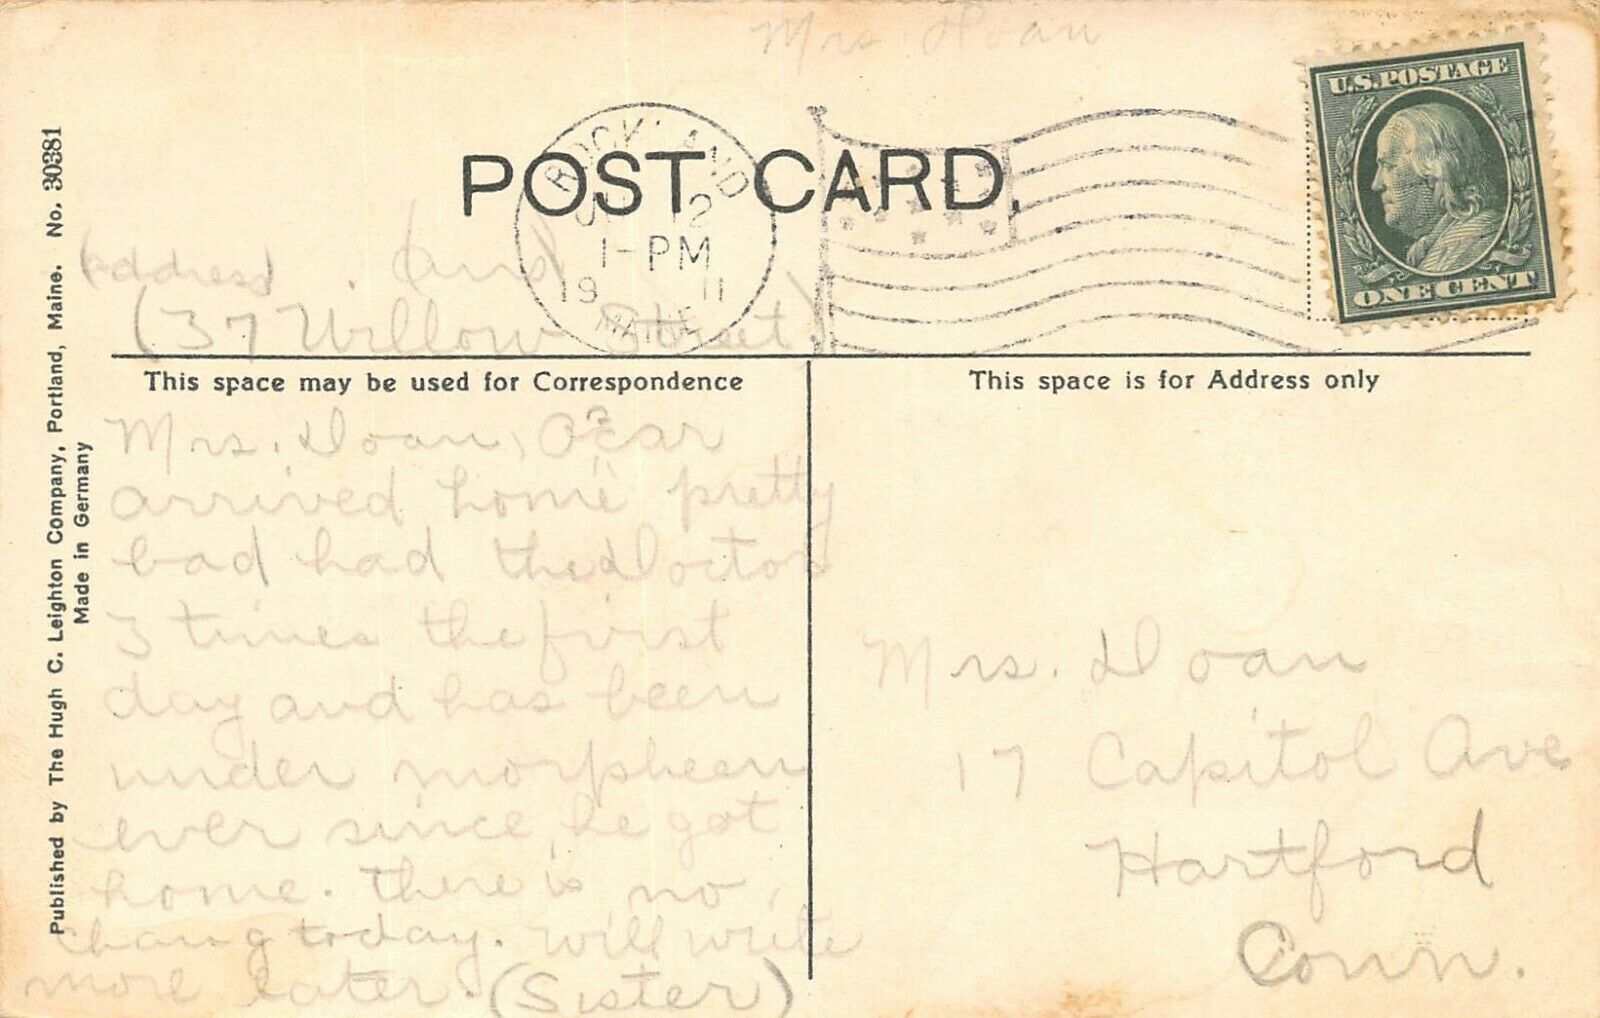 Mrs. Doan
U.S. POSTAGE
ONE CENT
POST CARD.
ROCKLAND
12
1-PM
19 11
MAINE
(address . (Ans)
(37 Willow Street.)
This space may be used for Correspondence
This space is for Address only
Mrs. Doan, Oscar
arrived home pretty
bad had the Doctor
3 times the first
day and has been
under morpheen
ever since he got
home. there is no
chang today. will write
more later. (Sister)
Mrs. Doan
17 Capitol Ave
Hartford
Conn.
Published by The Hugh C. Leighton Company, Portland, Maine. No. 30381
Made in Germany